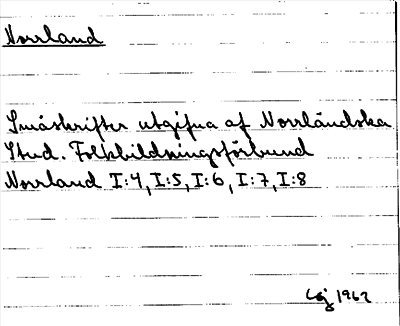 Norrland
Småskrifter utgifna af Norrländska
Stud. Folkbildningsförbund
Norrland I:4, I:5, I:6, I:7, I:8
1962